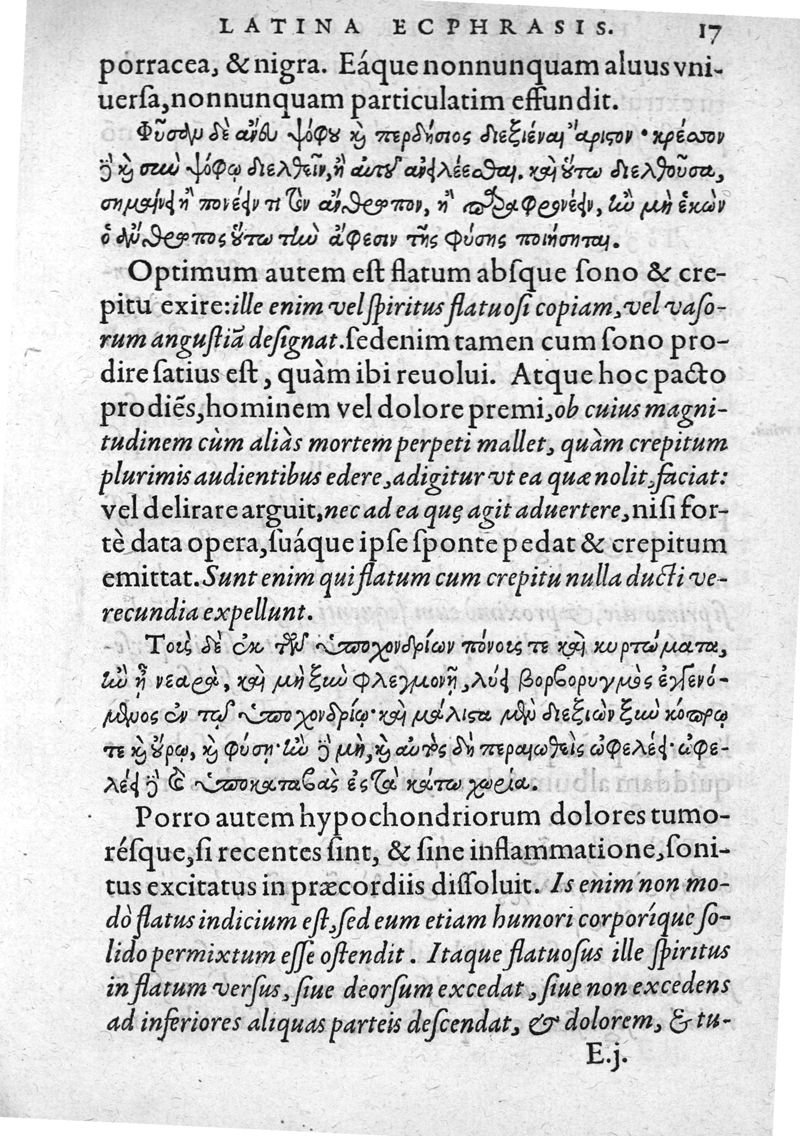 LATINA ECPHRASIS. 17
porracea, & nigra. Eáque nonnunquam aluus vni-
uersa, nonnunquam particulatim effundit.
Φῦσαν δὲ ἄνευ ψόφου καὶ περδήσιος διεξιέναι ἄριστον· κρέσσον
ἢ καὶ σὺν ψόφῳ διελθεῖν, ἢ αὐτοῦ ἀνειλέεσθαι. καὶ οὕτω διελθοῦσα,
σημαίνει ἢ πονέειν τι τὸν ἄνθρωπον, ἢ παραφρονέειν, ἢν μὴ ἑκὼν
ὁ ἄνθρωπος οὕτω τὴν ἄφεσιν τῆς φύσης ποιήσηται.
Optimum autem eſt flatum abſque ſono & cre-
pitu exire: ille enim vel ſpiritus flatuoſi copiam, vel vaſo-
rum anguſtiã deſignat. ſedenim tamen cum ſono pro-
dire ſatius eſt, quàm ibi reuolui. Atque hoc pacto
prodiẽs, hominem vel dolore premi, ob cuius magni-
tudinem cùm aliàs mortem perpeti mallet, quàm crepitum
plurimis audientibus edere, adigitur vt ea quæ nolit, faciat:
vel delirare arguit, nec ad ea quę agit aduertere, niſi for-
tè data opera, ſuáque ipſe ſponte pedat & crepitum
emittat. Sunt enim qui flatum cum crepitu nulla ducti ve-
recundia expellunt.
Τοὺς δὲ ἐκ τῶν ὑποχονδρίων πόνοις τε καὶ κυρτώματα,
ἢν ᾖ νεαρὰ, καὶ μὴ ξὺν φλεγμονῇ, λύει βορβορυγμὸς ἐγγενό-
μενος ἐν τῷ ὑποχονδρίῳ· καὶ μάλιστα μὲν διεξιὼν ξὺν κόπρῳ
τε καὶ οὔρῳ, καὶ φύσῃ· ἢν δὲ μὴ, καὶ αὐτὸς δὴ περαιωθεὶς ὠφελέει· ὠφε-
λέει δὲ καὶ ὑποκαταβὰς ἐς τὰ κάτω χωρία.
Porro autem hypochondriorum dolores tumo-
réſque, ſi recentes ſint, & ſine inflammatione, ſoni-
tus excitatus in præcordiis diſſoluit. Is enim non mo-
dò flatus indicium eſt, ſed eum etiam humori corporíque ſo-
lido permixtum eſſe oſtendit. Itaque flatuoſus ille ſpiritus
in flatum verſus, ſiue deorſum excedat, ſiue non excedens
ad inferiores aliquas parteis deſcendat, & dolorem, & tu-
E.j.